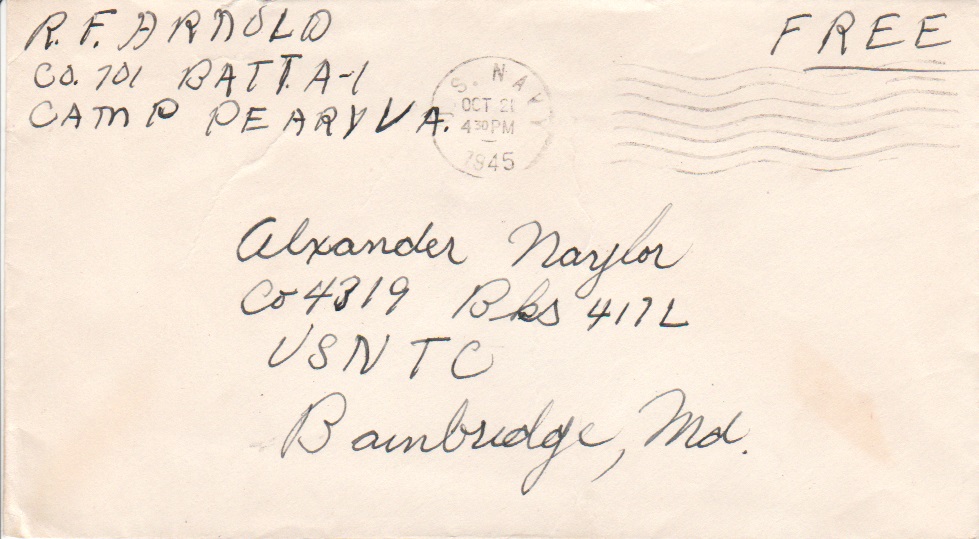 R. F. ARNOLD
CO. 701 BATT. A-1
CAMP PEARY VA.
FREE
S. NAVY
OCT 21
4 30 PM
1945
Alxander Naylor
Co 4319 Bks 417L
USNTC
Bainbridge, Md.